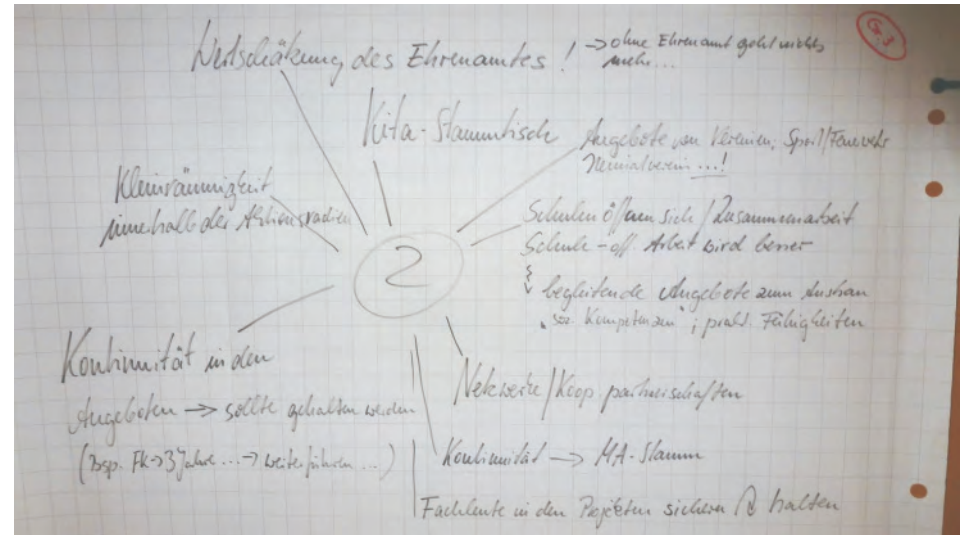 Gr. 3
Wertschätzung des Ehrenamtes! → ohne Ehrenamt geht nichts
mehr...
Kita-Stammtisch
Angebote von Vereinen; Sport/Feuerwehr
Heimatverein ...!
Kleinräumigkeit
innerhalb der Aktionsradien
Schulen öffnen sich / Zusammenarbeit
Schule - off. Arbeit wird besser
begleitende Angebote zum Ausbau
"soz. Kompetenzen"; prakt. Fähigkeiten
2
Kontinuität in den
Angeboten → sollte gehalten werden
(Bsp. FK → 3 Jahre ... → weiterführen ...)
Netzwerke / Koop. partnerschaften
Kontinuität → MA-Stamm
Fachleute in den Projekten sichern & halten